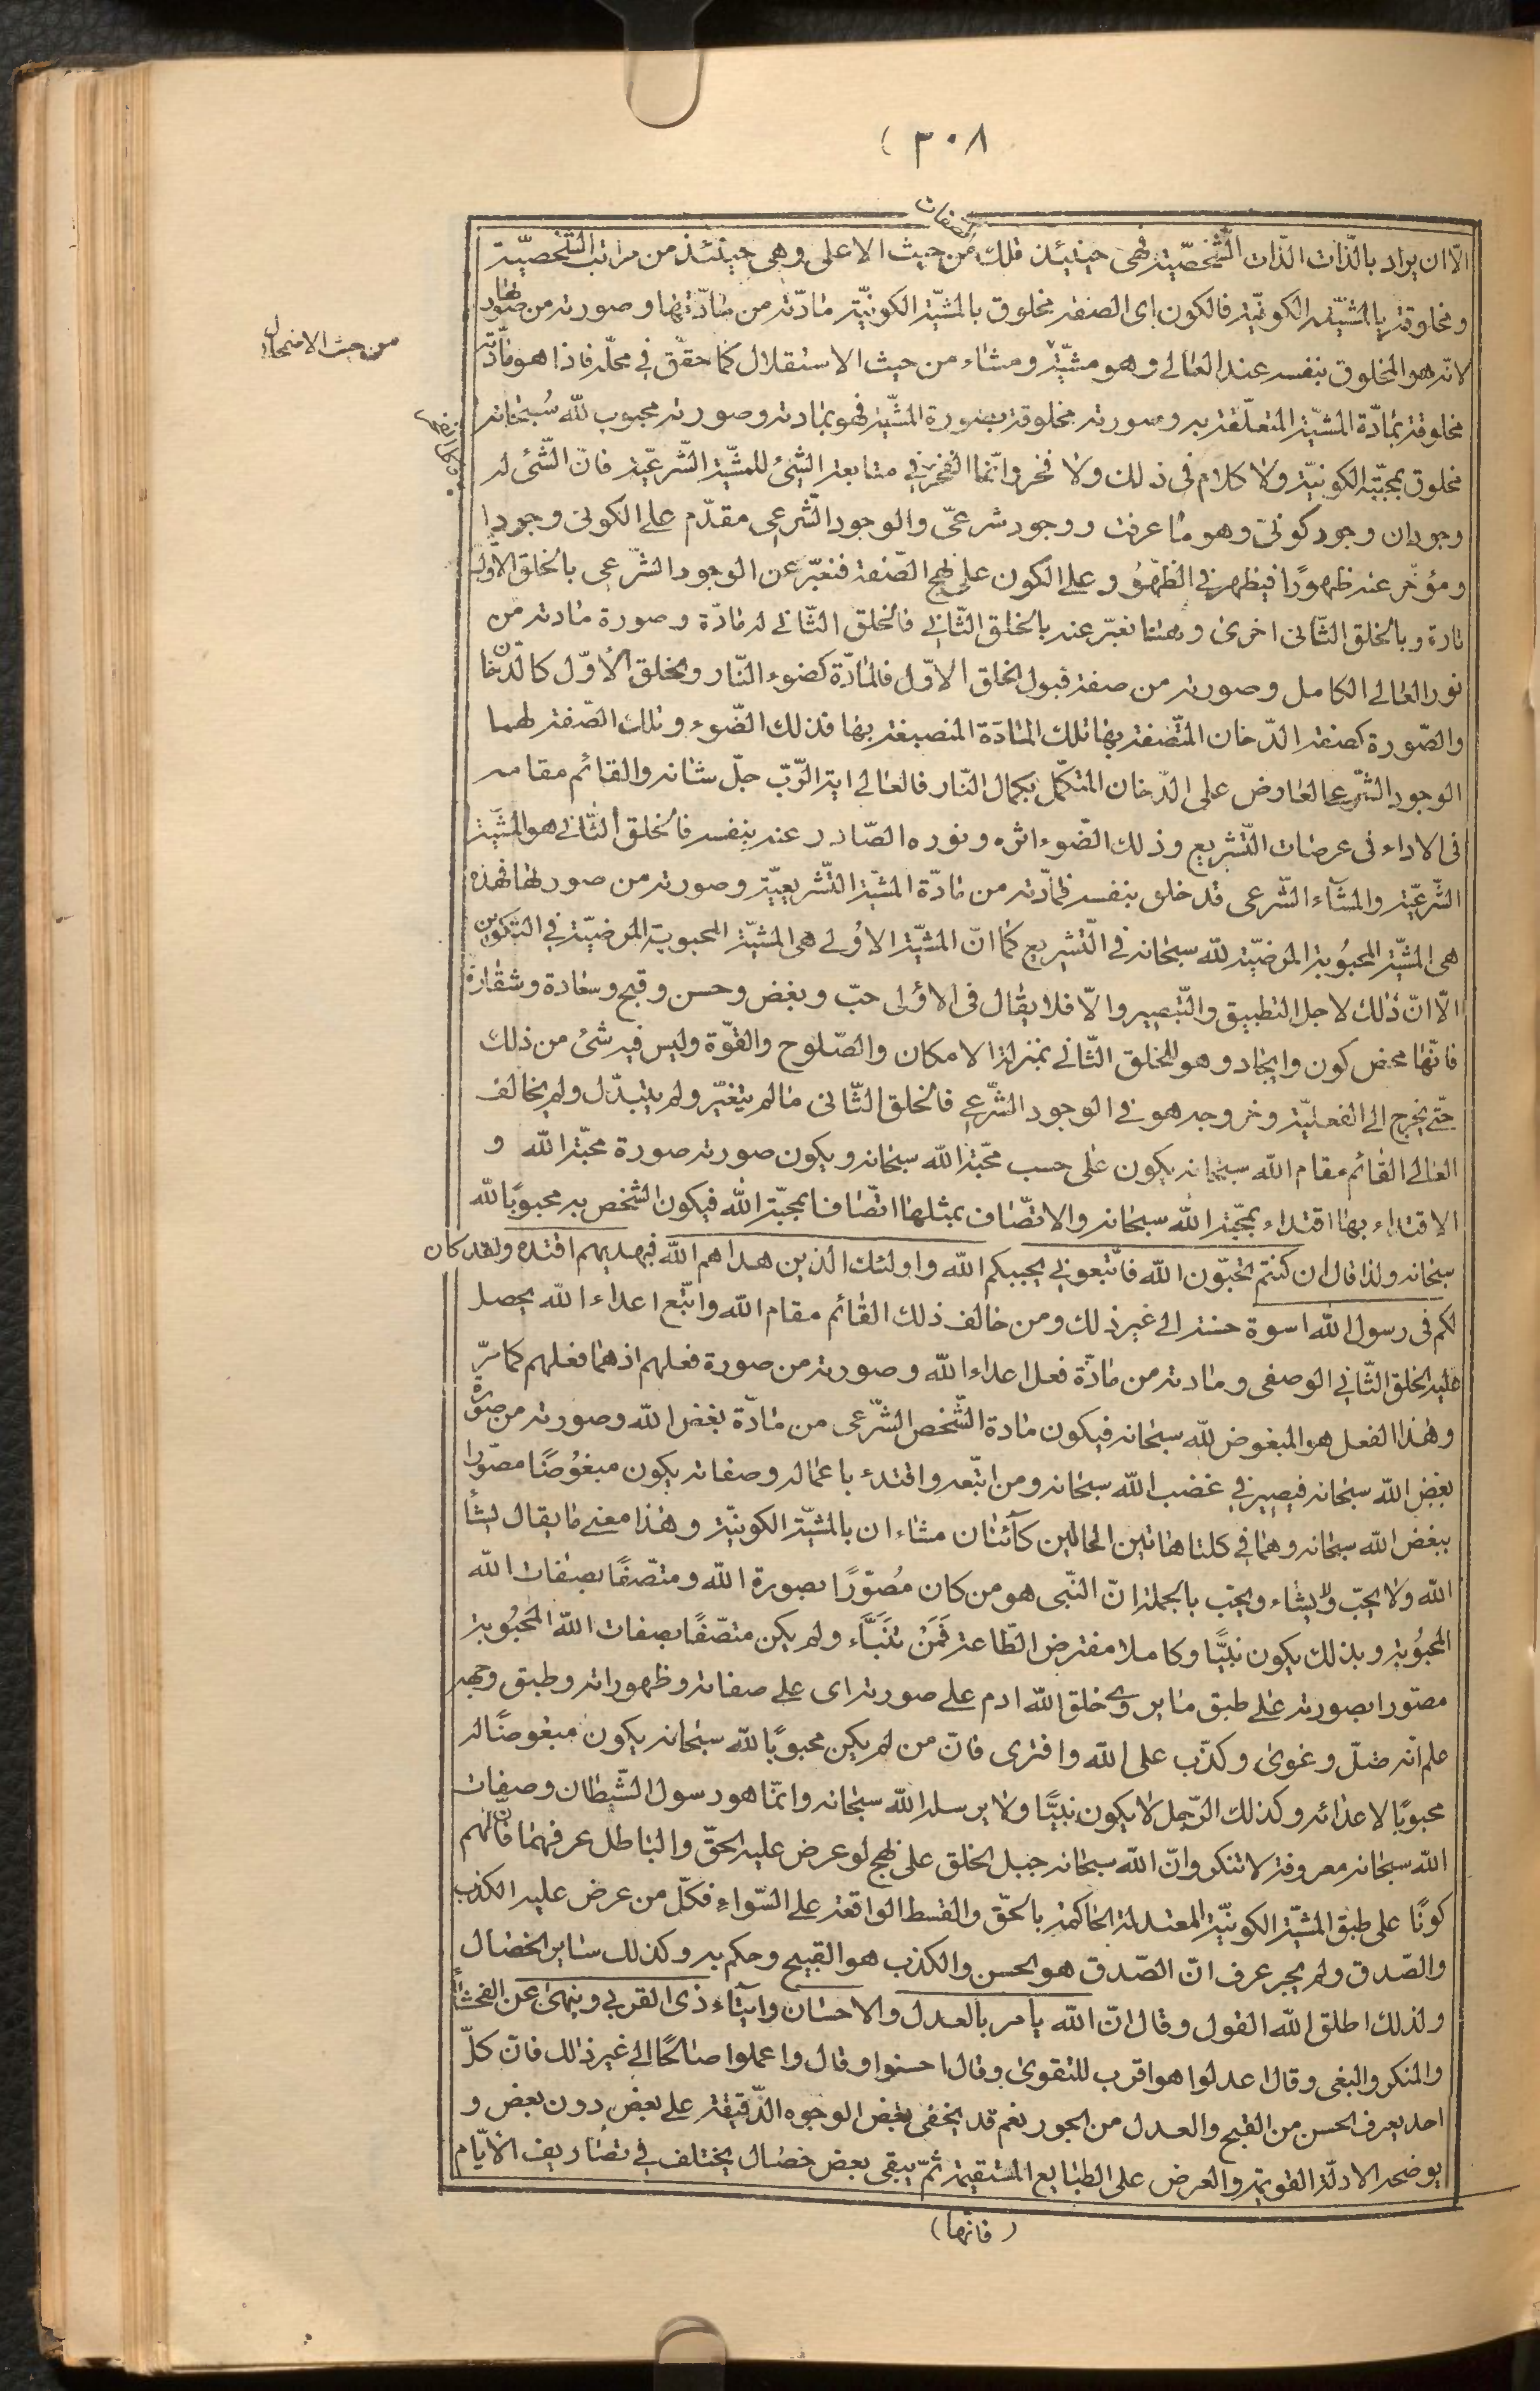 ٣٠٨ (
الصفات
الّا ان يراد بالذّات الذّات الشّخصيّة فهى حينئذ فلك من حيث الاعلى وهى حينئذ من مراتب الشّخصيّة
ومخلوقة بالمشيّة الكونيّة فالكون اى الصفة مخلوق بالمشيّة الكونيّة مادّته من مادّتها وصورته من صورتها
لانّه هو المخلوق بنفسه عند العالى وهو مشيّة ومشاء من حيث الاستقلال كما حقّق في محلّه فاذا هو مادّته
من حيث الاضمحلال
مخلوقة بمادّة المشيّة المتعلّقة به وصورته مخلوقة بصورة المشيّة فهو بمادته وصورته محبوب للّه سبحانه
مخلوق بمحبّته الكونيّة ولا كلام فى ذلك ولا فخر وانّما الفخر في متابعة الشئ للمشيّة الشّرعيّة فانّ الشّئ له
وجودان وجود كونىّ وهو ما عرفت ووجود شرعىّ والوجود الشّرعى مقدّم على الكونى وجودا
ومؤخّر عنه ظهورًا فيظهر في الظّهور على الكون على نهج الصّفة فنعبّر عن الوجود الشّرعى بالخلق الاوّل
تارة وبالخلق الثّانى اخرى وههنا نعبّر عنه بالخلق الثّانى فالخلق الثّانى له مادّة وصورة مادته من
نور العالى الكامل وصورته من صفة قبول الخلق الاوّل فالمادّة كضوء النّار والخلق الاوّل كالدّخان
والصّورة كصفة الدّخان المتّصفة بها تلك المادّة المنصبغة بها فذلك الضّوء وتلك الصّفة لهما
الوجود الشّرعى العارض على الدّخان المتكمّل بكمال النّار فالعالى اية الرّبّ جلّ شانه والقائم مقامه
فى الاداء فى عرصات التّشريع وذلك الضّوء اثره ونوره الصّادر عنه بنفسه فالخلق الثّانى هو المشيّة
الشّرعيّة والمشآء الشّرعى قد خلق بنفسه فمادّته من مادّة المشيّة التّشريعيّة وصورته من صورتها فهذه
هى المشيّة المحبوبة المرضيّة للّه سبحانه في التّشريع كما انّ المشيّة الاولى هى المشيّة المحبوبة المرضيّة في التّكوين
الّا انّ ذلك لاجل التطبيق والتّعبير والّا فلا يقال فى الاولى حبّ وبغض وحسن وقبح وسعادة وشقاوة
فانّها محض كون وايجاد وهو للخلق الثّانى بمنزلة الامكان والصّلوح والقوّة وليس فيه شئ من ذلك
حتّى يخرج الى الفعليّة وخروجه هو في الوجود الشّرعى فالخلق الثّانى ما لم يتغيّر ولم يتبدّل ولم يخالف
العالى القائم مقام اللّه سبحانه يكون على حسب محبّة اللّه سبحانه ويكون صورته صورة محبّة اللّه و
الاقتداء بها اقتداء بمحبّة اللّه سبحانه والاتّصاف بمثلها اتّصافا بمحبّة اللّه فيكون الشخص به محبوبًا للّه
سبحانه ولذا قال ان كنتم تحبّون اللّه فاتّبعونى يحببكم اللّه واولئك الذين هداهم اللّه فبهديهم اقتده ولقد كان
لكم فى رسول اللّه اسوة حسنة الى غير ذلك ومن خالف ذلك القائم مقام اللّه واتّبع اعداء اللّه يحصل
عليه الخلق الثّانى الوصفى ومادته من مادّة فعل اعداء اللّه وصورته من صورة فعلهم اذ هما فعلهم كما مرّ
وهذا الفعل هو المبغوض للّه سبحانه فيكون مادة الشّخص الشّرعى من مادّة بغض اللّه وصورته من صورة
بغض اللّه سبحانه فيصير في غضب اللّه سبحانه ومن اتّبعه واقتدء باعماله وصفاته يكون مبغوضًا مصوّرا
ببغض اللّه سبحانه وهما في كلتا هاتين الحالين كآئنان مشاءان بالمشيّة الكونيّة وهذا معنى ما يقال يشأ
اللّه ولا يحبّ ولا يشاء ويحبّ بالجملة انّ النّبى هو من كان مُصوّرًا بصورة اللّه ومتّصفًا بصفات اللّه
المحبوبة وبذلك يكون نبيًّا وكاملا مفترض الطّاعة فَمَنْ تَنَبَّاء ولم يكن متّصفًا بصفات اللّه المحبُوبة
مصوّرا بصورته على طبق ما يروى خلق اللّه ادم على صورته اى على صفاته وظهوراته وطبق وجهه
علم انّه ضلّ وغوى وكذّب على اللّه وافترى فانّ من لم يكن محبوبًا للّه سبحانه يكون مبغوضًا له
محبوبًا لاعدائه وكذلك الرّجل لا يكون نبيًّا ولا يرسله اللّه سبحانه وانّما هو رسول الشّيطان وصفات
اللّه سبحانه معروفة لا تنكر وانّ اللّه سبحانه جبل الخلق على نهج لو عرض عليه الحقّ والباطل عرفهما فانّهم
كونًا على طبق المشيّة الكونيّة المعتدلة الحاكمة بالحقّ والقسط الواقعة على السّواء فكلّ من عرض عليه الكذب
والصّدق ولم يجر عرف انّ الصّدق هو الحسن والكذب هو القبيح وحكم به وكذلك ساير الخصال
ولذلك اطلق اللّه القول وقال انّ اللّه يامر بالعدل والاحسان وايتآء ذى القربى وينهى عن الفحشاء
والمنكر والبغى وقال اعدلوا هو اقرب للتقوى وقال احسنوا وقال واعملوا صالحًا الى غير ذلك فانّ كلّ
احد يعرف الحسن من القبح والعدل من الجور نعم قد يخفى بعض الوجوه الدّقيقة على بعض دون بعض و
يوضحه الادلّة القويمة والعرض على الطبايع المستقيمة ثمّ يبقى بعض خصال يختلف في تصاريف الايّام
(فانّها)